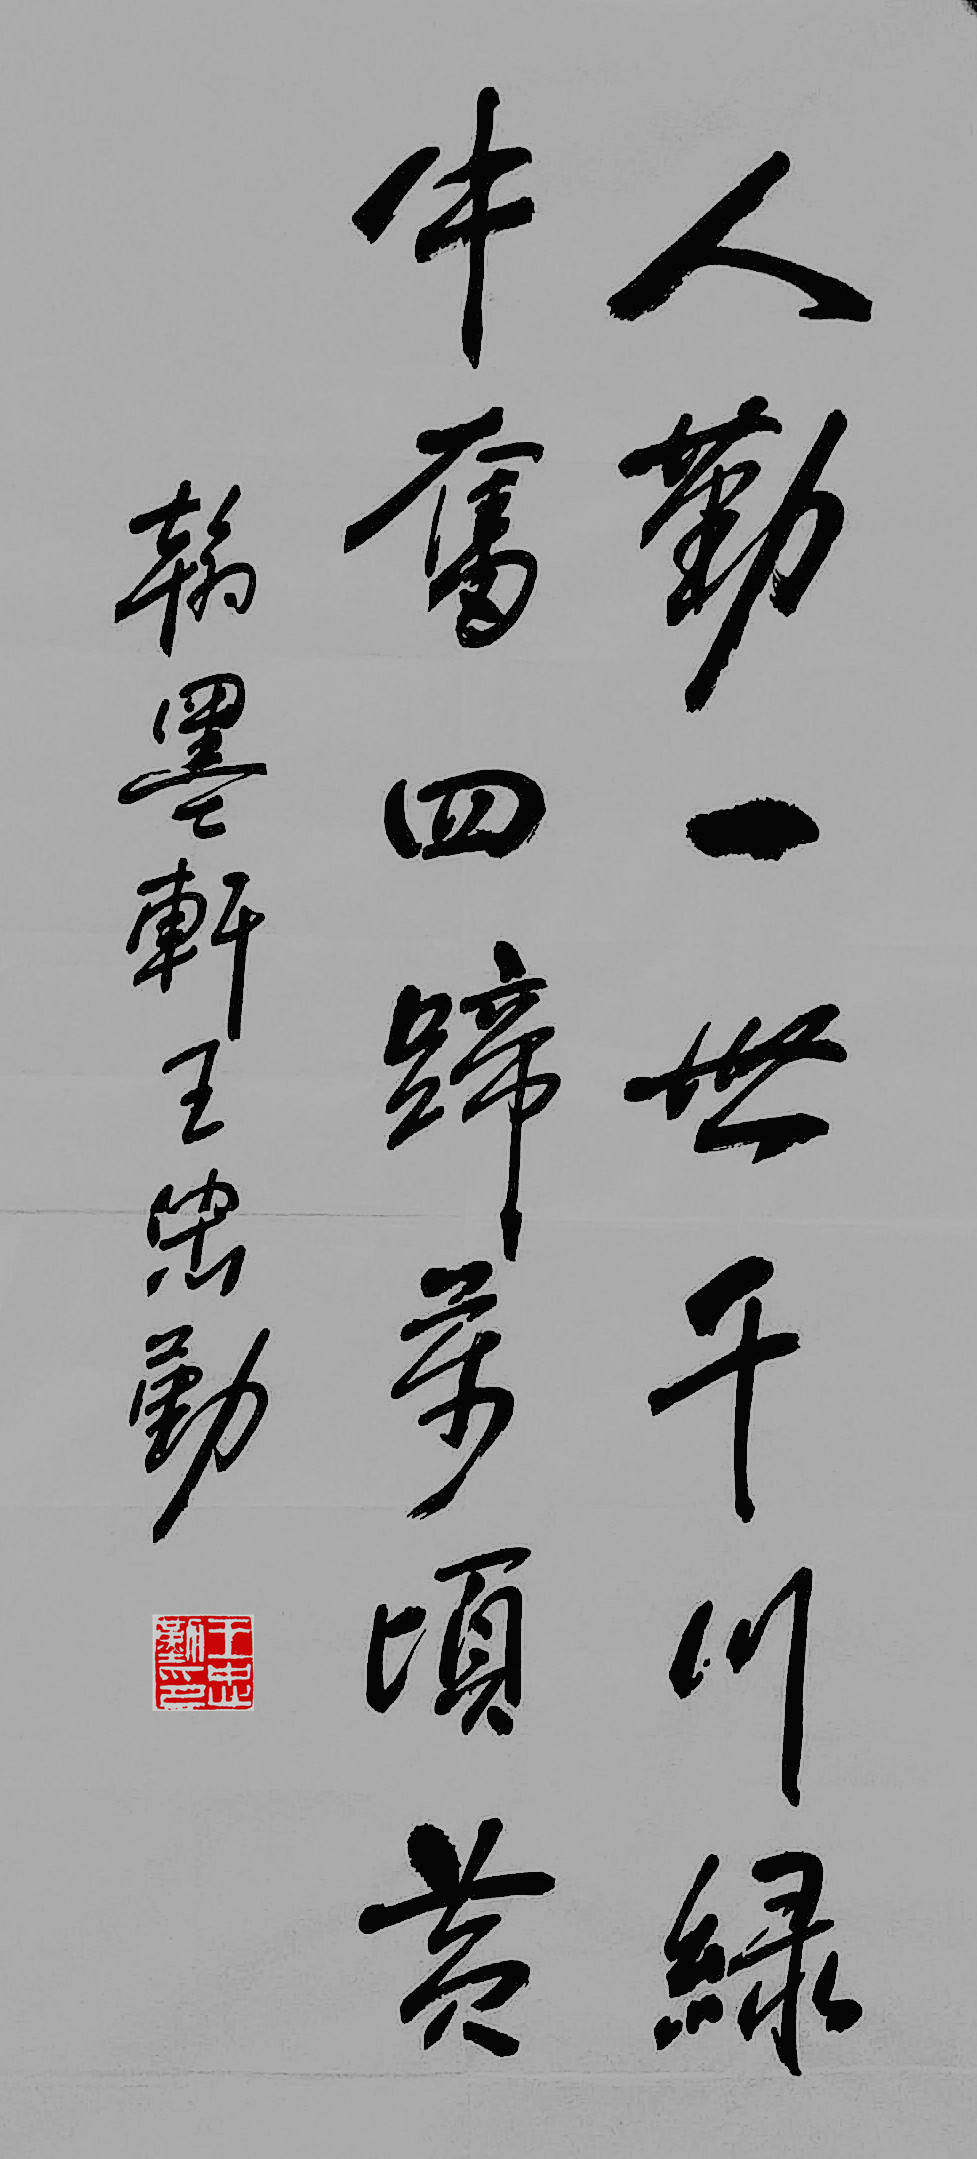 人勤一世千川綠
牛奮四蹄萬頃黄
翰墨軒王忠勤
王忠勤印